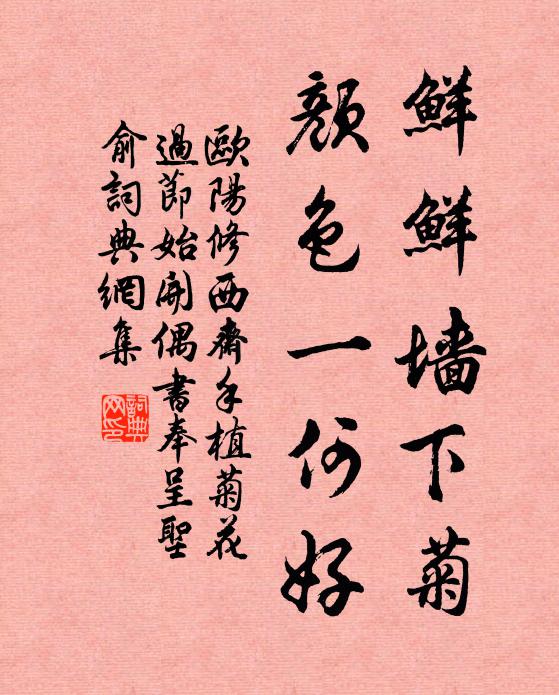 鮮鮮墻下菊
顏色一何好
歐陽修西齋手植菊花
過節始開偶書奉呈聖
俞詞典網集
詞典网印